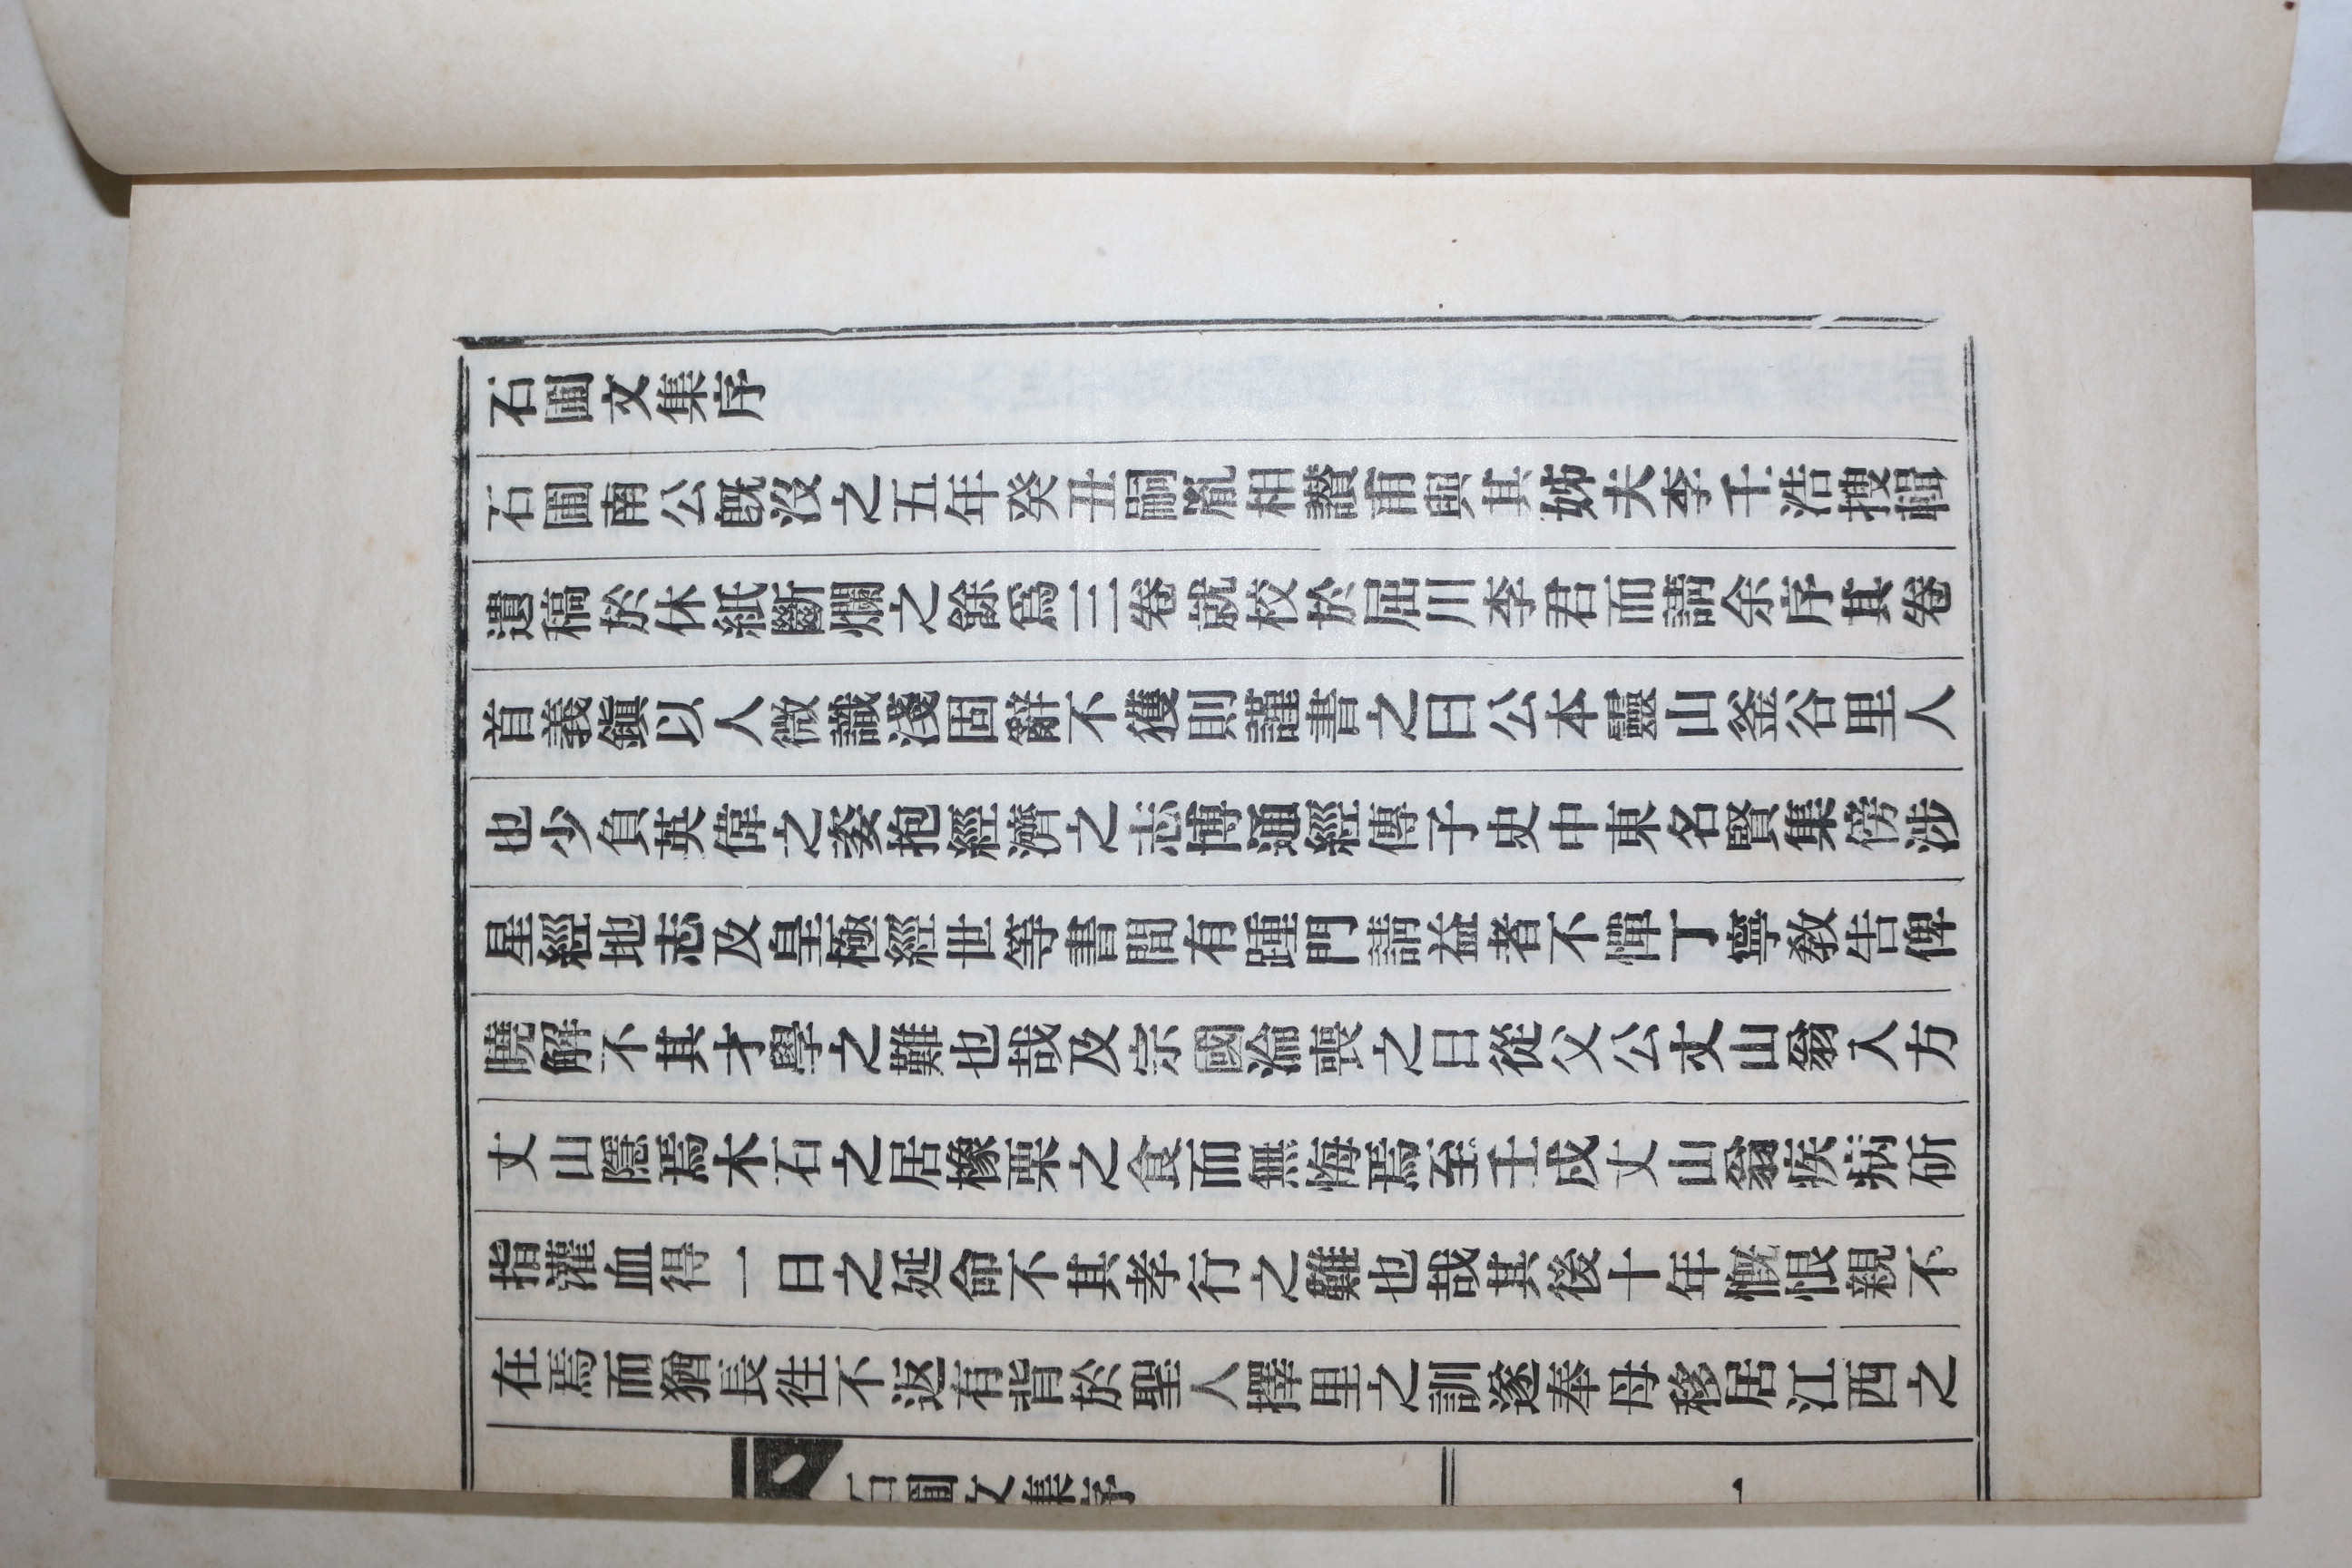 石圃文集序
石圃南公旣沒之五年癸丑嗣胤相讚甫與其姊夫李千浩搜輯
遺稿於休紙斷爛之餘爲三卷就校於屈川李君而請余序其卷
首義鎭以人微識淺固辭不獲則謹書之曰公本靈山釜谷里人
也少負英偉之姿抱經濟之志博通經傳子史中東名賢集傍涉
星經地志及皇極經世等書間有踵門請益者不憚丁寧敎告俾
曉解不其才學之難也哉及宗國淪喪之日從父公丈山翁入方
丈山隱焉木石之居橡栗之食而無悔焉至壬戌丈山翁疾病斫
指灌血得一日之延命不其孝行之難也哉其後十年慨恨親不
在焉而猶長徃不返有背於聖人擇里之訓遂奉母移居江西之
石圃文集序
一